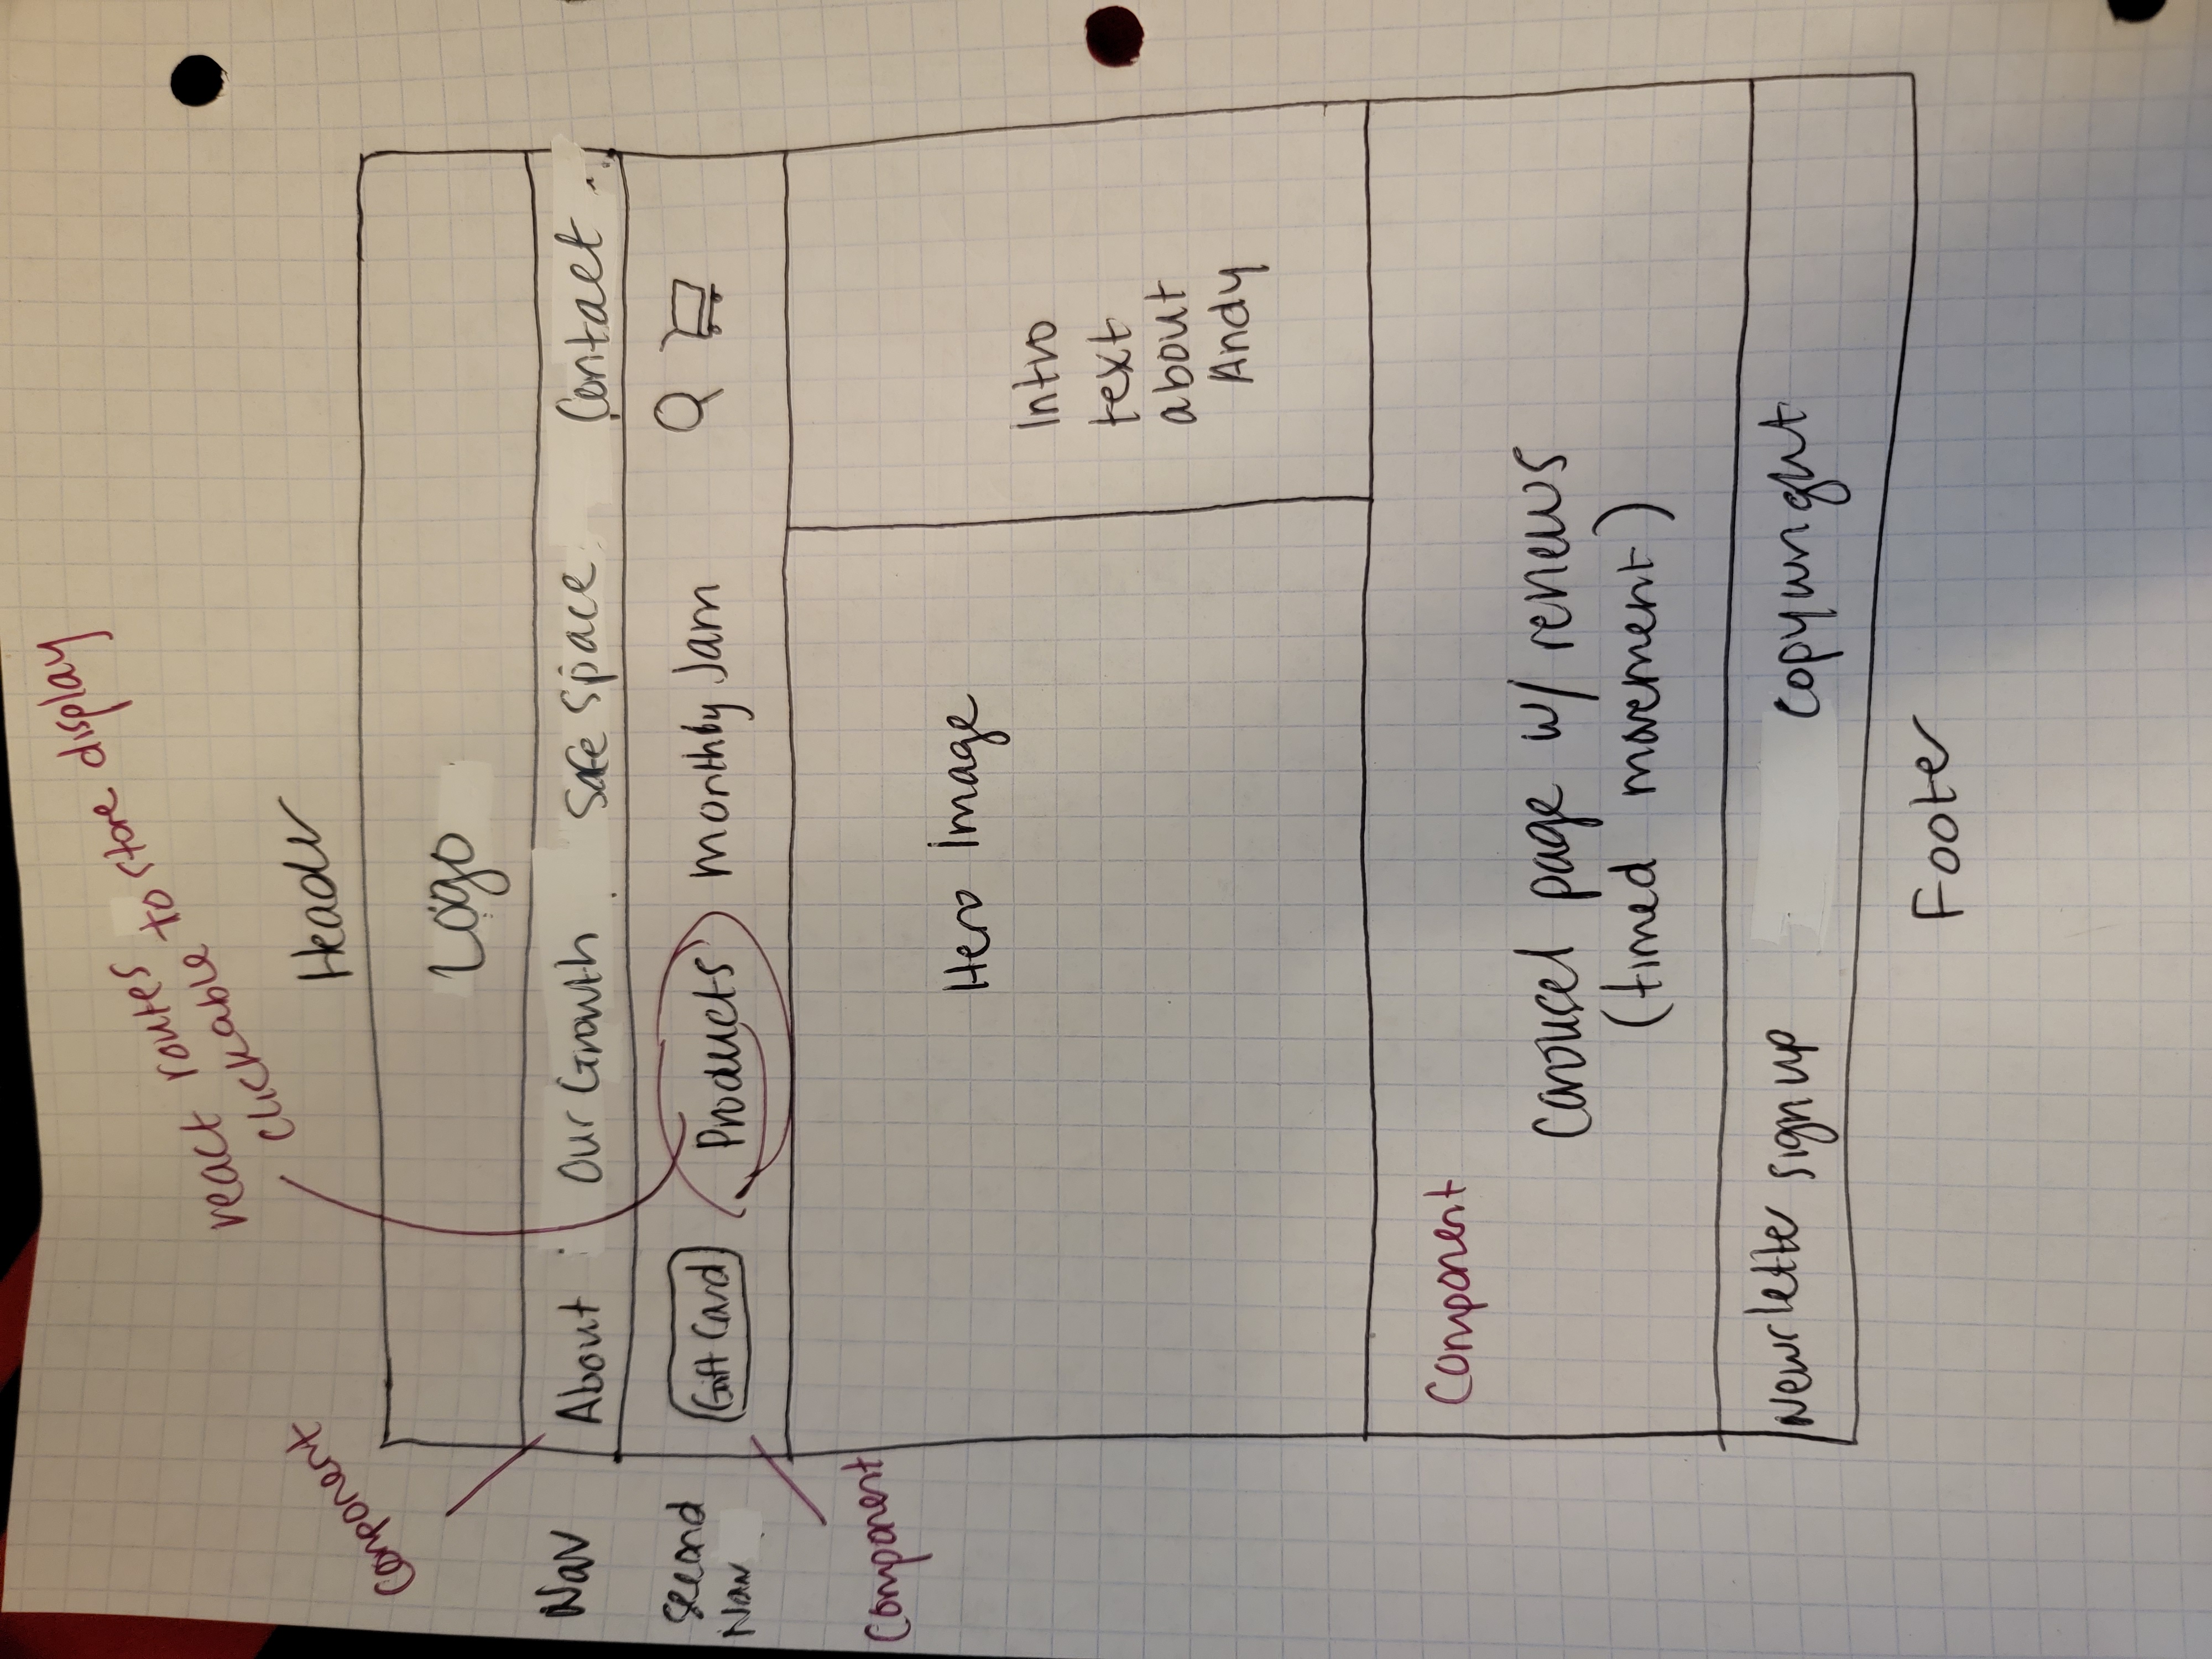 react routes
clickable to store display
Component
Header
Logo
Nav
About Our Growth Safe Space Contact
Second
Nav
Gift Card Products Monthly Jam
Component
Hero Image
Intro
text
about
Andy
Component
Carousel page w/ reviews
(timed movement)
Newsletter sign up Copywright
Footer